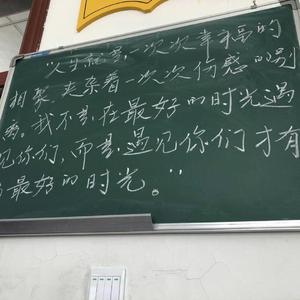 “人生就是,一次次幸福的
相聚,夹杂着一次次伤感的别
离。我不是在最好的时光遇
见你们,而是遇见你们才有
最好的时光。”